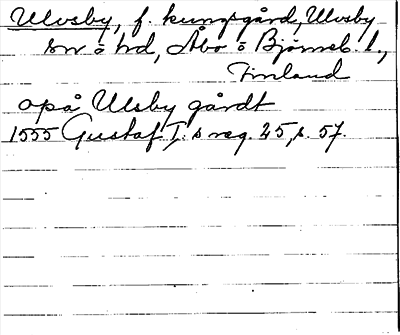 Ulvsby, f. kungsgård, Ulvsby
sn o hd, Åbo o Björneb. l.,
Finland
opå Ulsby gårdt
1555 Gustaf I:s reg. 25, s. 57.